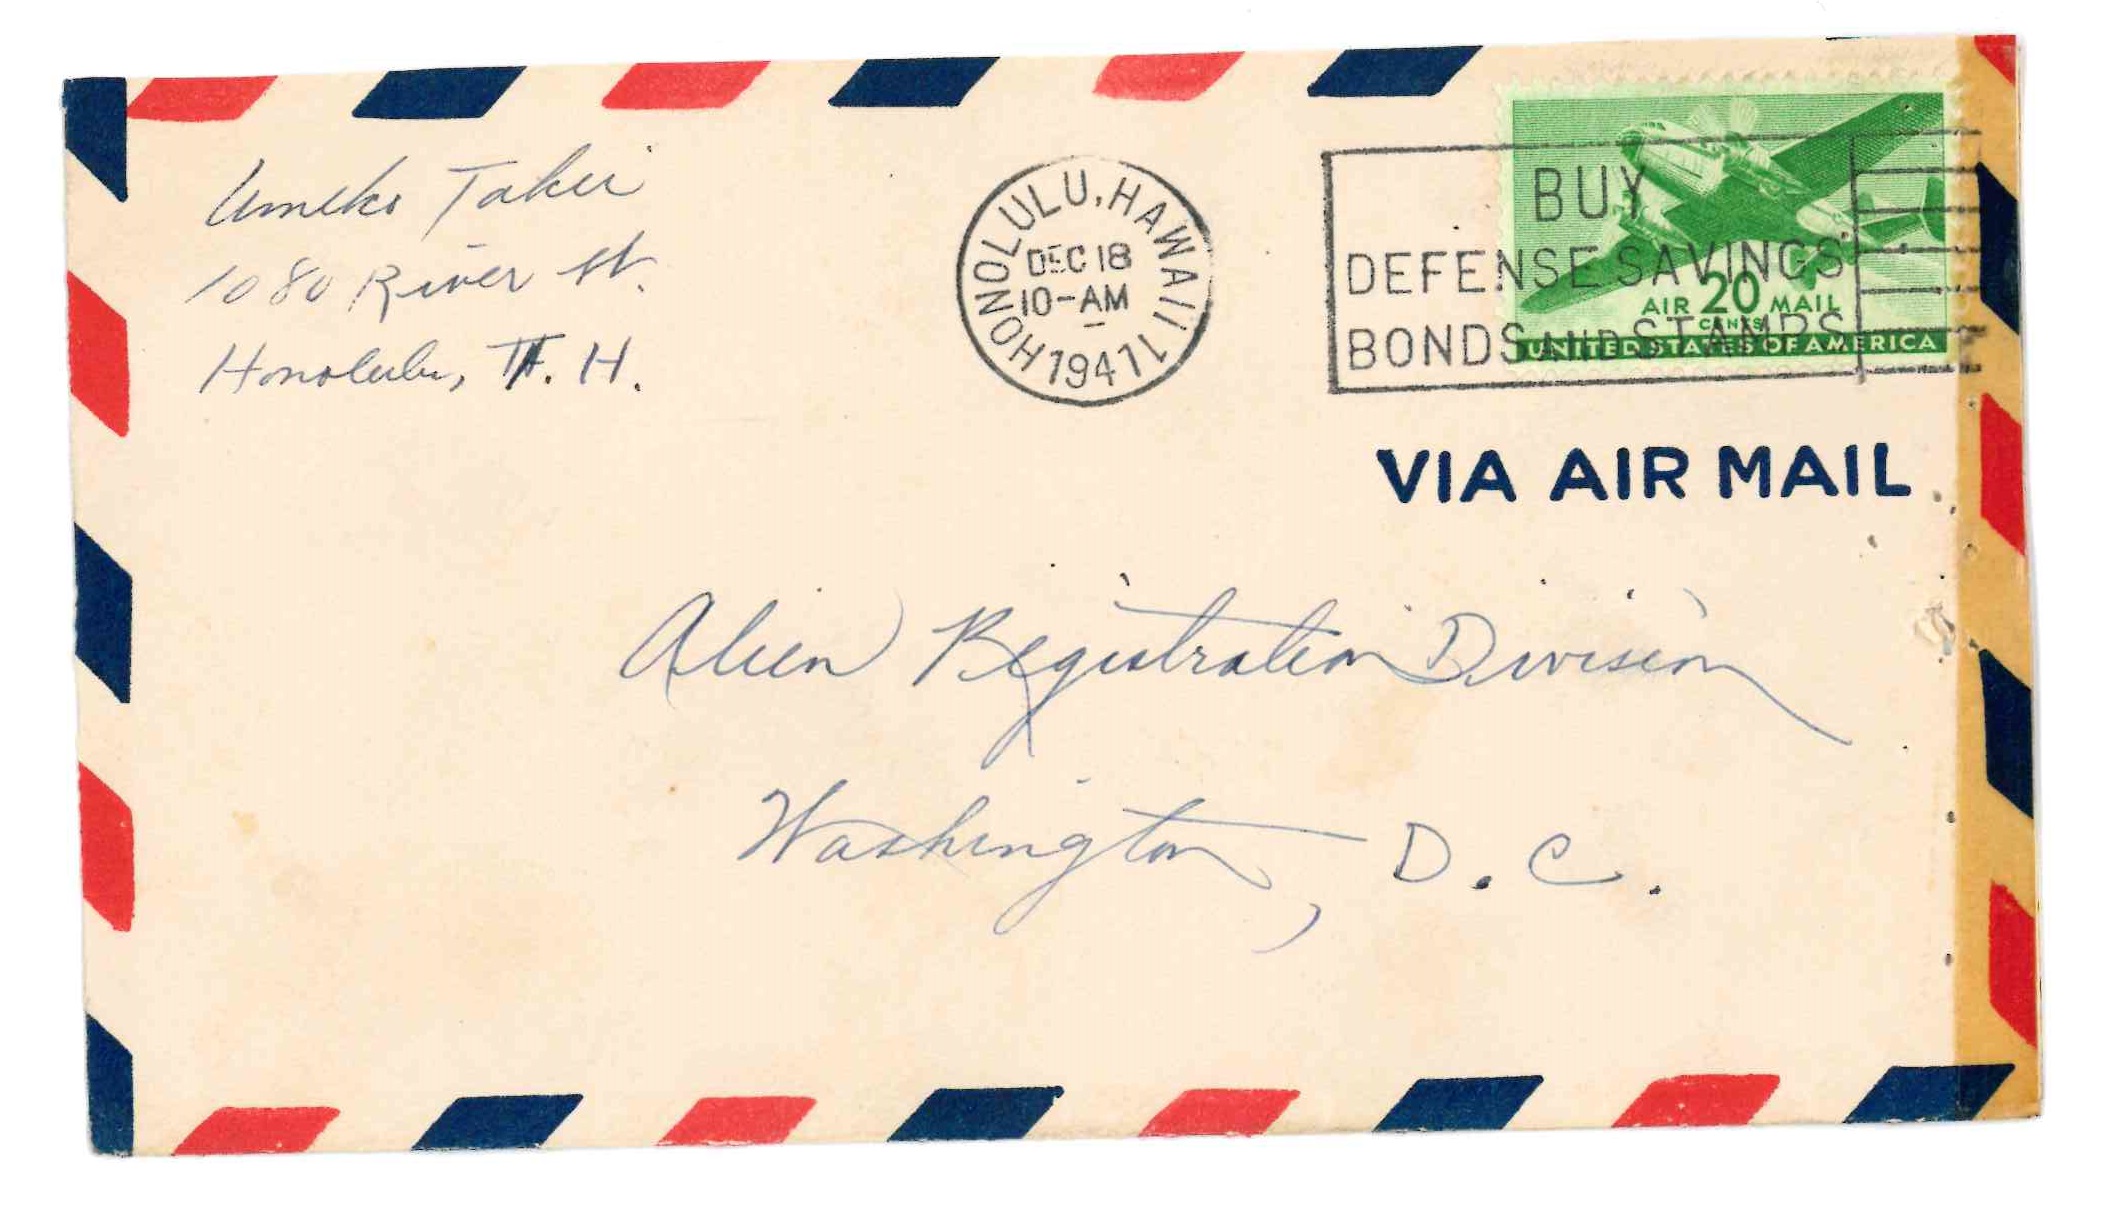 Umeko Takei
1080 River St.
Honolulu, T. H.
HONOLULU, HAWAII 11
DEC 18
10-AM
1941
BUY
DEFENSE SAVINGS
BONDS AND STAMPS
AIR 20 MAIL
CENTS
UNITED STATES OF AMERICA
VIA AIR MAIL
Alien Registration Division
Washington, D. C.